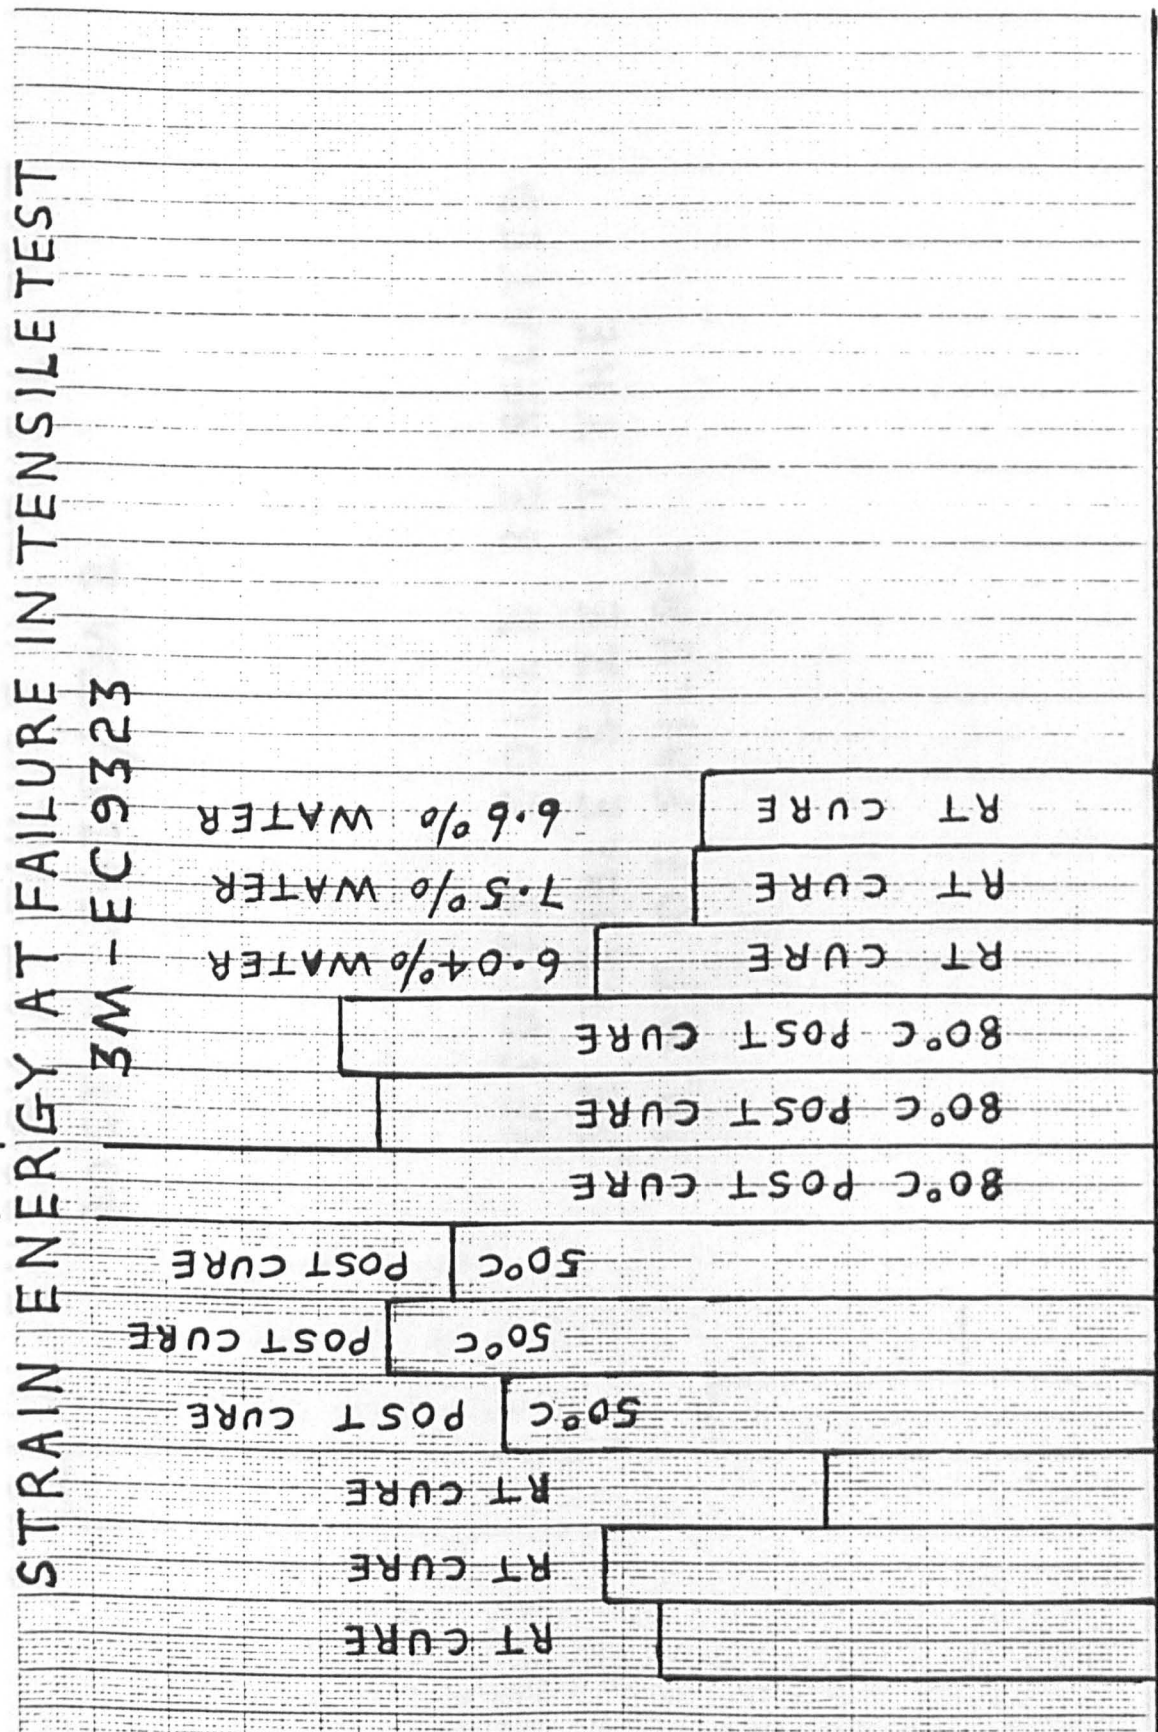 STRAIN ENERGY AT FAILURE IN TENSILE TEST
3M-EC 9323
RT CURE
RT CURE
RT CURE
50°C POST CURE
50°C POST CURE
50°C POST CURE
80°C POST CURE
80°C POST CURE
80°C POST CURE
RT CURE 6.04% WATER
RT CURE 7.5% WATER
RT CURE 6.6% WATER